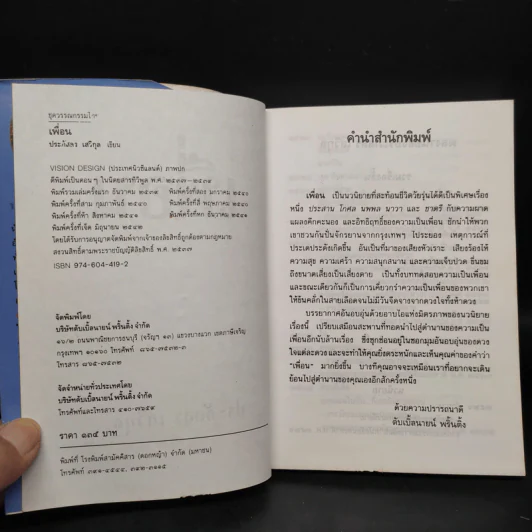 ชุดวรรณกรรมไทย
เพื่อน
ประภัสสร เสวิกุล เขียน
VISION DESIGN (ประเทศนิวซีแลนด์) ภาพปก
ตีพิมพ์เป็นตอนๆ ในนิตยสารทีวีพูล พ.ศ. ๒๕๓๗-๒๕๓๘
พิมพ์รวมเล่มครั้งแรก ธันวาคม ๒๕๓๘ พิมพ์ครั้งที่สอง มกราคม ๒๕๔๐
พิมพ์ครั้งที่สาม กุมภาพันธ์ ๒๕๔๐ พิมพ์ครั้งที่สี่ พฤษภาคม ๒๕๔๐
พิมพ์ครั้งที่ห้า สิงหาคม ๒๕๔๑ พิมพ์ครั้งที่หก ธันวาคม ๒๕๔๑
พิมพ์ครั้งที่เจ็ด มิถุนายน ๒๕๔๒
โดยได้รับการอนุญาตจัดพิมพ์จากเจ้าของลิขสิทธิ์ถูกต้องตามกฎหมาย
สงวนสิทธิ์ตามพระราชบัญญัติลิขสิทธิ์ พ.ศ. ๒๕๓๗
ISBN 974-604-419-2
จัดพิมพ์โดย
บริษัทดับเบิ้ลนายน์ พริ้นติ้ง จำกัด
๑๖/๒ ถนนพาณิชยการธนบุรี (จรัญฯ ๑๓) แขวงบางแวก เขตภาษีเจริญ
กรุงเทพฯ ๑๐๑๖๐ โทรศัพท์ ๘๖๕-๗๕๓๒-๓
โทรสาร ๘๖๕-๗๕๓๒
จัดจำหน่ายทั่วประเทศโดย
บริษัทดับเบิ้ลนายน์ พริ้นติ้ง จำกัด
โทรศัพท์และโทรสาร ๔๑๐-๗๘๕๘
ราคา ๑๓๕ บาท
พิมพ์ที่ โรงพิมพ์สามัคคีสาร (ดอกหญ้า) จำกัด (มหาชน)
โทรศัพท์
คำนำสำนักพิมพ์
เพื่อน เป็นนวนิยายที่สะท้อนชีวิตวัยรุ่นได้ดีเป็นพิเศษเรื่อง
หนึ่ง ประสาน โกศล นพพล นาวา และ ธวศรี กับความผาด
แผลงคึกคะนอง และอิทธิฤทธิ์ของความเป็นเพื่อน ชักนำให้พวก
เขาชวนกันปั่นจักรยานจากกรุงเทพฯ ไประยอง เหตุการณ์ที่
ประเดประดังเกิดขึ้น อันเป็นที่มาของเสียงหัวเราะ เสียงร้องไห้
ความสุข ความเศร้า ความสนุกสนาน และความเจ็บปวด ขื่นขม
ถึงขนาดเสี่ยงเสี่ยงตาย เป็นทั้งบททดสอบความเป็นเพื่อน
และขณะเดียวกันก็เป็นการเคี่ยวกรำความเป็นเพื่อนของพวกเขา
ให้ข้นคลั่กในสายเลือดจนไม่มีวันจืดจางจากดวงใจทั้งห้าดวง
บรรยากาศอันอบอุ่นด้วยอายไอแห่งมิตรภาพของนวนิยาย
เรื่องนี้ เปรียบเสมือนสะพานที่ทอดนำไปสู่ตำนานของความเป็น
เพื่อนอีกนับล้านเรื่อง ซึ่งซุกซ่อนอยู่ในซอกมุมอันอบอุ่นของดวง
ใจแต่ละดวงและจะทำให้คุณยิ่งตระหนักและเห็นคุณค่าของคำว่า
“เพื่อน” มากยิ่งขึ้น บางทีคุณอาจจะเหมือนเราที่อยากจะเดิน
ย้อนไปสู่ตำนานของคุณเองอีกสักครั้งหนึ่ง
ด้วยความปรารถนาดี
ดับเบิ้ลนายน์ พริ้นติ้ง